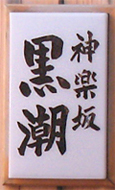 神楽坂
黒潮